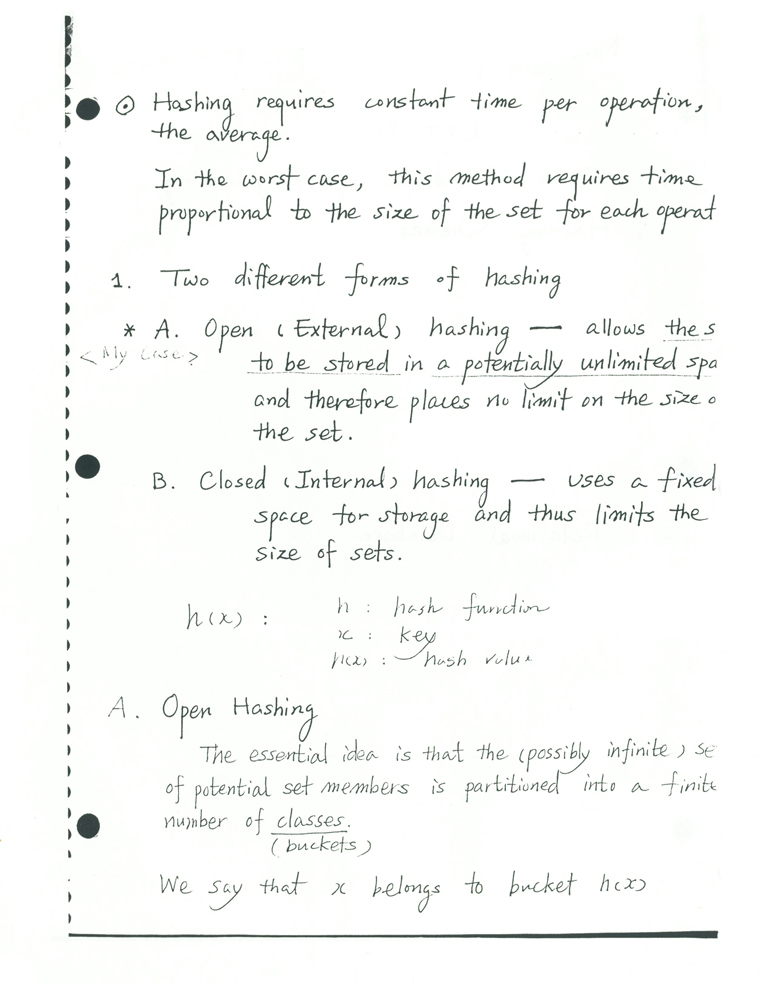 ⊙ Hashing requires constant time per operation,
the average.
In the worst case, this method requires time
proportional to the size of the set for each operat
1. Two different forms of hashing
* A. Open (External) hashing — allows the s
<My Case>
to be stored in a potentially unlimited spa
and therefore places no limit on the size o
the set.
B. Closed (Internal) hashing — uses a fixed
space for storage and thus limits the
size of sets.
h(x) : h : hash function
x : key
h(x) : hash value
A. Open Hashing
The essential idea is that the (possibly infinite) se
of potential set members is partitioned into a finite
number of classes.
(buckets)
We say that x belongs to bucket h(x)